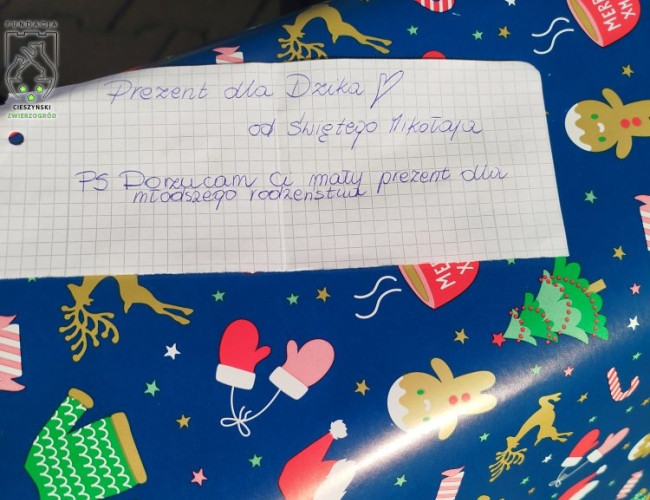 FUNDACJA
CIESZYŃSKI
ZWIERZOGRÓD
Prezent dla Dzika
od Świętego Mikołaja
PS Dorzucam Ci mały prezent dla
młodszego rodzeństwa
MERRY
XM
MERR
X